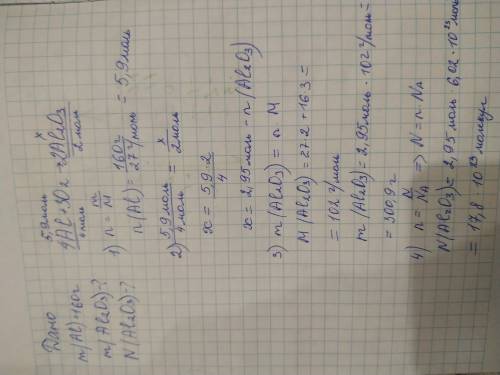 Дано
m(Al)=160г
m(Al2O3)-?
N(Al2O3)-?
5,9моль x
4Al+3O2=2Al2O3
4моль 2моль
1) n = m/M
n(Al) = 160г / 27 г/моль = 5,9моль
2) 5,9моль / 4моль = x / 2моль
x = 5,9·2 / 4
x = 2,95моль - n(Al2O3)
3) m(Al2O3) = n·M
M(Al2O3) = 27·2+16·3 =
= 102 г/моль
m(Al2O3) = 2,95моль·102 г/моль =
= 300,9г
4) n = N/NA => N = n·NA
N(Al2O3) = 2,95моль·6,02·10²³моль
= 17,8·10²³молекул